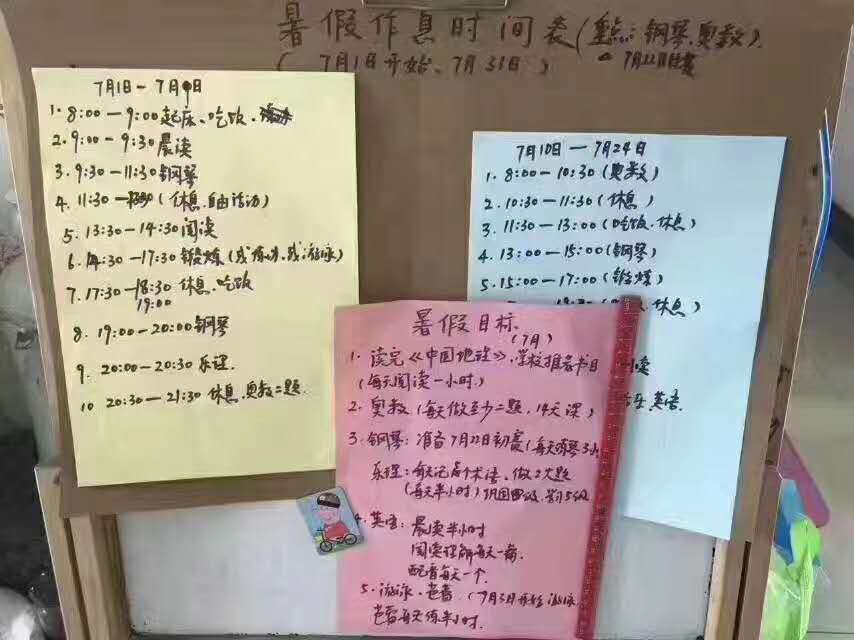 暑假作息时间表(重点:钢琴.奥数).
(7月1日开始、7月31日)
7月22日比赛
7月1日—7月9日
1.8:00—9:00起床、吃饭.
2.9:00-9:30晨读
3.9:30-11:30钢琴
4.11:30—(休息.自由活动)
5.13:30-14:30阅读
6.14:30-17:30锻炼(或、或游泳)
7.17:30-18:30休息、吃饭
19:00
8.19:00-20:00钢琴
9.20:00-20:30乐理.
10 20:30-21:30休息.奥数二题.
7月10日—7月24日
1.8:00-10:30(奥数)
2.10:30-11:30(休息)
3.11:30-13:00(吃饭.休息)
4.13:00-15:00(钢琴)
5.15:00-17:00(锻炼)
.休息)
读
英语.
暑假目标.
(7月)
1.读完《中国地理》、学校推荐书目
(每天阅读一小时.)
2.奥数(每天做至少二题,14天课)
3.钢琴:准备7月22日初赛(每天练琴3小
乐理:每天记5个术语、做2大题
(每天半小时)巩固四级.
4.英语:晨读半小时
阅读理解每天一篇
配音每天一个.
5.游泳、芭蕾.(7月3日开始游泳
芭蕾每天练半小时.